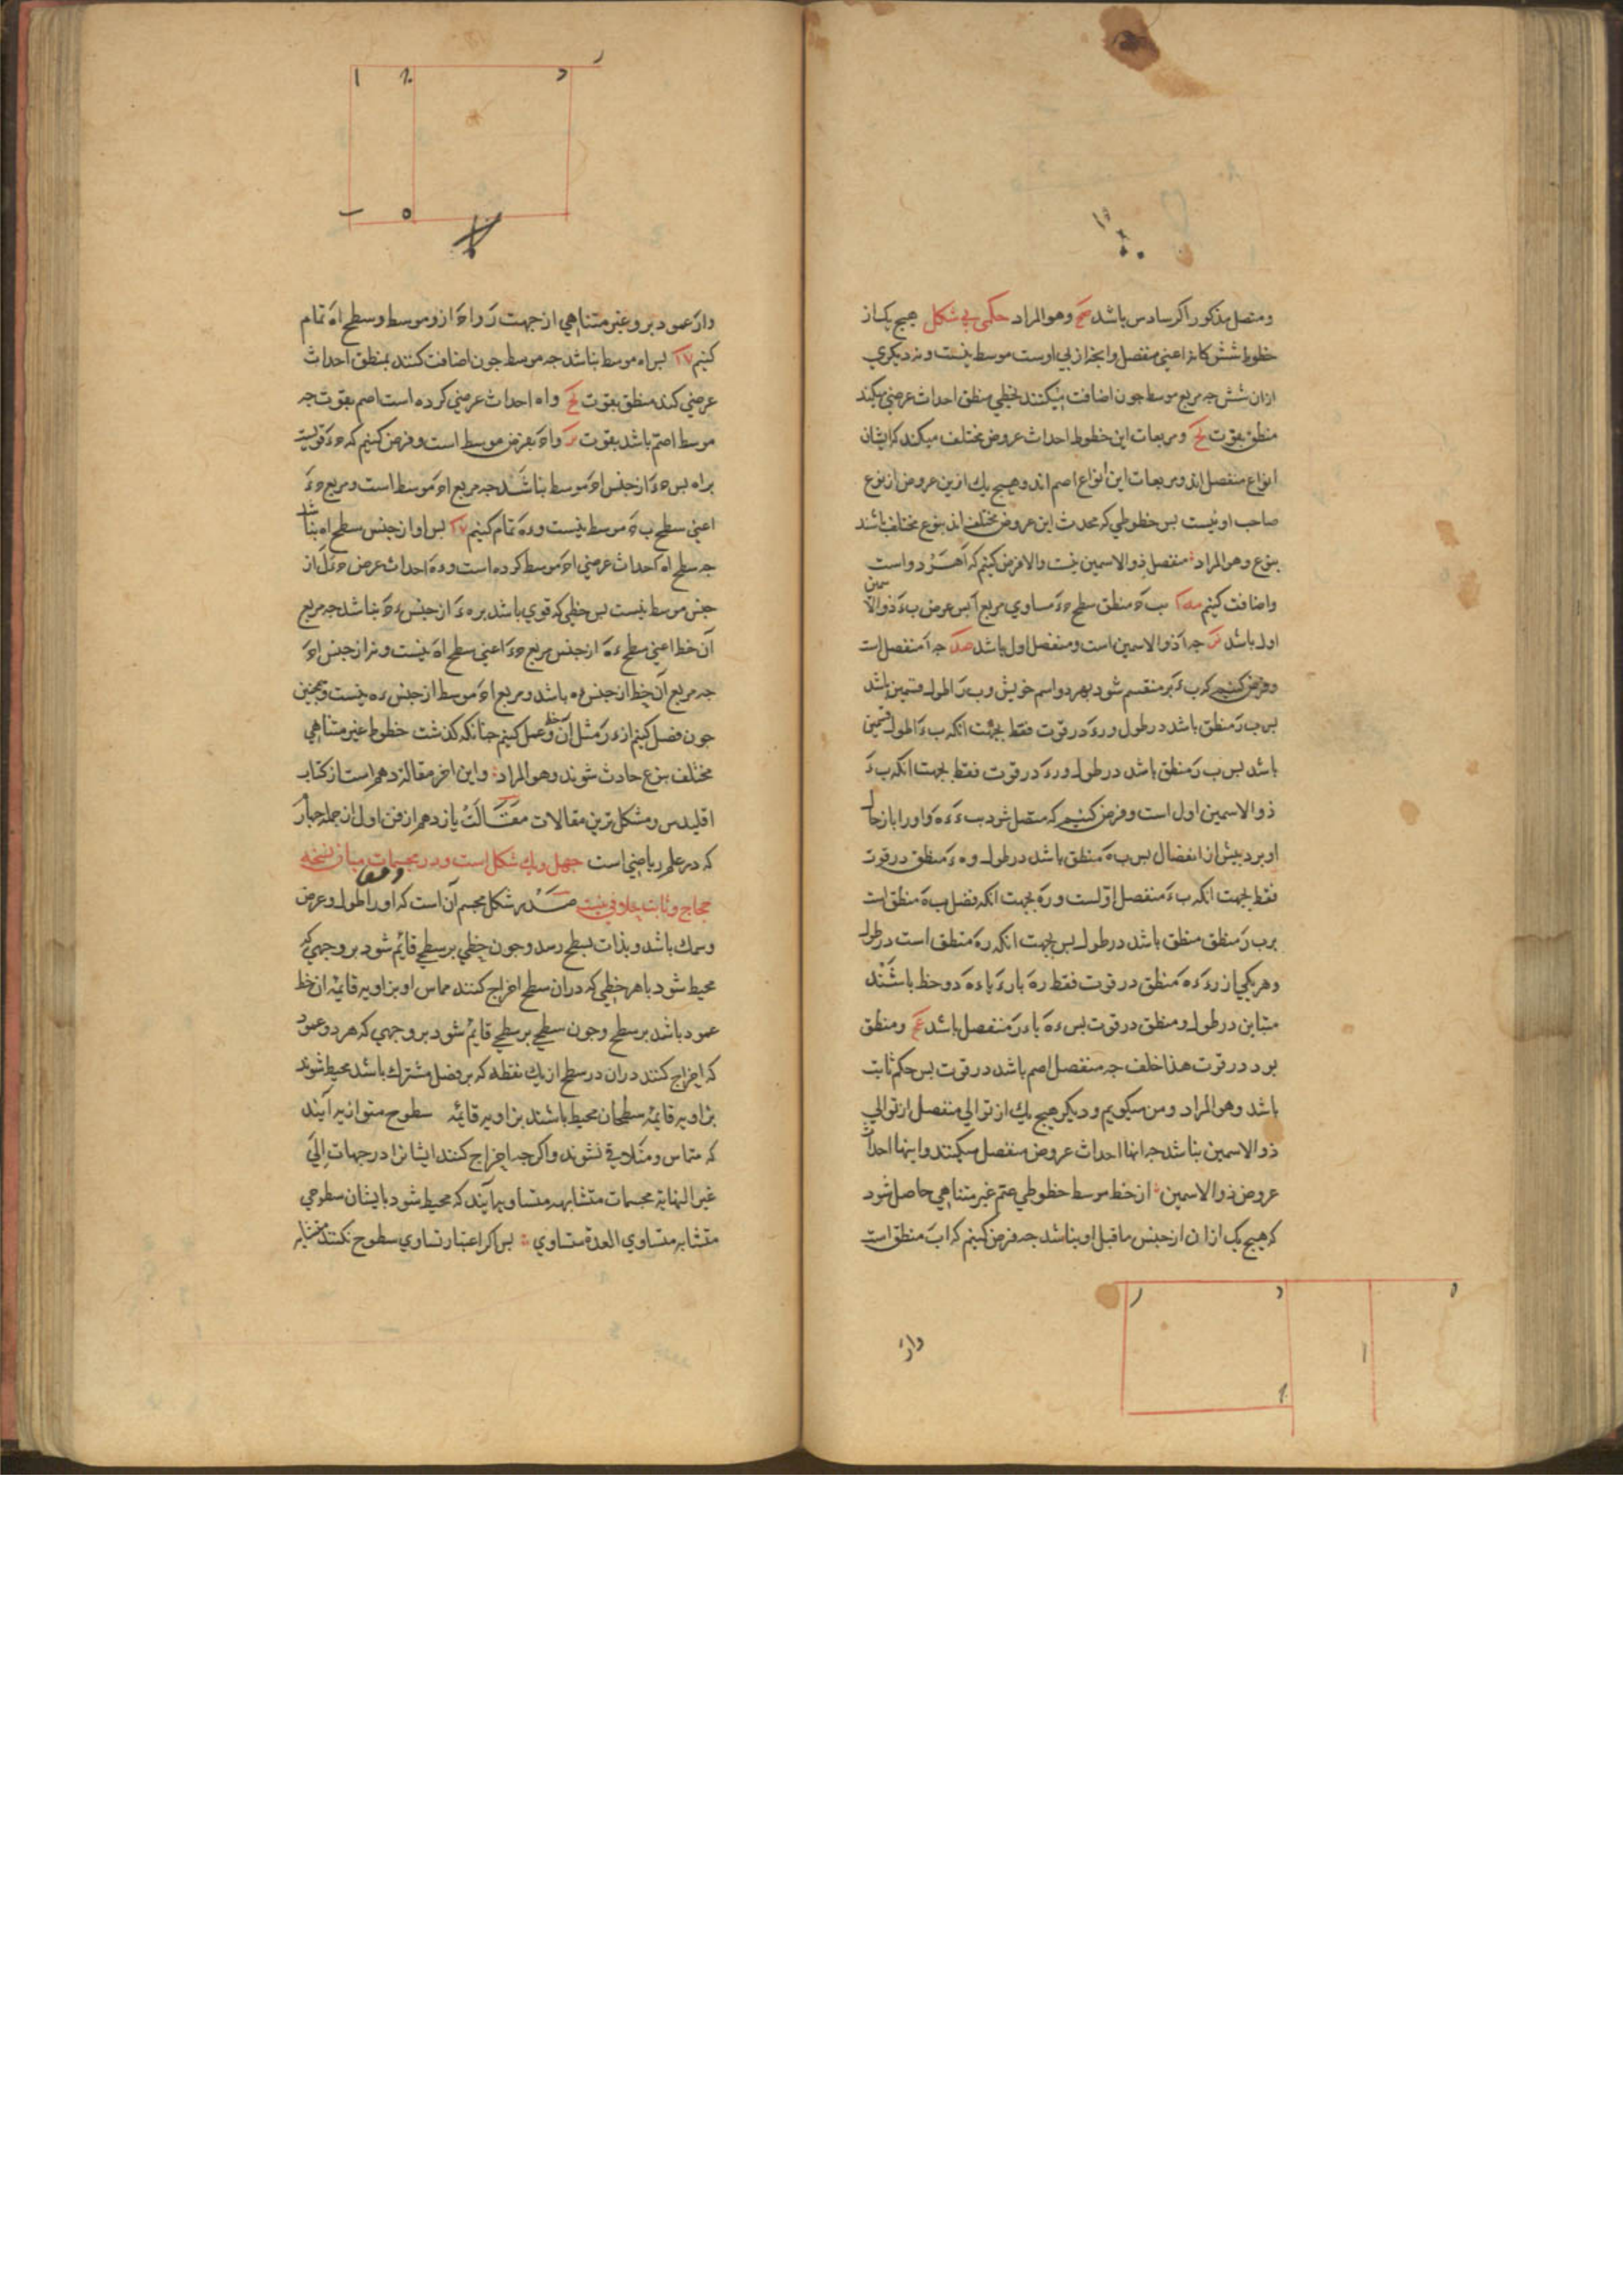 ومتصل مذکور را اکر سادس باشد وهو المراد حکمی بی شکل هیچ یک از
خطوط ششکانه اعنی منفصل وانجه از بی اوست موسط نیست ونه دیکری
ازان شش جه مربع موسط جون اضافت میکنند بخطی منطق احداث عرضی میکند
منطق بقوت ومربعات این خطوط احداث عروض مختلف میکند که ایشان
انواع منفصل اند ومربعات این انواع اصم اند وهیچ یک ازین عروض از نوع
صاحب او نیست بس خطوطی که محدث این عروض مختلف اند بنوع مختلف باشند
بنوع وهو المراد منفصل ذو الاسمین نیست والا فرض کنیم که آ هر دو است
واضافت کنیم ب ح منطق سطح ح ء مساوی مربع آ بس عرض ب ء ذو الاسمین
اول باشد جه آ ذو الاسمین است ومنفصل اول باشد جه آ منفصل است
وفرض کنیم که ب ء بر منقسم شود بهر دو اسم خویش و ب ر اطول قسمین باشد
بس ب ر منطق باشد در طول و ر ء در قوت فقط بجهت انکه ب ء اطول قسمین
باشد بس ب ر منطق باشد در طول و ر ء در قوت فقط بجهت انکه ب ء
ذو الاسمین اول است وفرض کنیم که متصل شود ب ء ء ه واورا باز حال
او برد بیش از انفصال بس ب ه منطق باشد در طول و ه ء منطق در قوت
فقط بجهت انکه ب ء منفصل اولست و ر ه بجهت انکه فضل ب ه منطق است
بر ب ر منطق منطق باشد در طول بس بجهت انکه ر ه منطق است در طول
وهر یکی از ر ء ء ه منطق در قوت فقط ر ه با ر ء با ء ه دو خط باشند
متباین در طول ومنطق در قوت بس ء ه با ء ر منفصل باشد ومنطق
برد در قوت هذا خلف جه منفصل اصم باشد در قوت بس حکم ثابت
باشد وهو المراد ومن میکویم ودیکر هیچ یک از توالی منفصل از توالی
ذو الاسمین نباشد جه انها احداث عروض منفصل میکنند واینها احداث
عروض ذو الاسمین از خط موسط خطوطی صم غیر متناهی حاصل شود
که هیچ یک ازان از جنس ما قبل او نباشد جه فرض کنیم که ا ب منطق است
ر د ه
ا
واز
ر
ا د
ب ه
واز عمود برو غیر متناهی از جهت ر و ا ح ازو موسط وسطح ا ه تمام
کنیم بس ا ه موسط نباشد جه موسط جون اضافت کنند بمنطق احداث
عرضی کند منطق بقوت و ا ه احداث عرضی کرده است اصم بقوت جه
موسط اصم باشد بقوت و ا ح بفرض موسط است وفرض کنیم که ح ء قویست
بر ا ه بس ح ء از جنس ا ح موسط نباشد جه مربع ا ح موسط است ومربع ح ء
اعنی سطح ب ح موسط نیست و ء ه تمام کنیم بس او از جنس سطح ا ه نباشد
جه سطح ا ه احداث عرضی ا ح موسط کرده است و ء ه احداث عرض ح ء که از
جنس موسط نیست بس خطی که قوی باشد بر ه ء از جنس ء ح نباشد جه مربع
آن خط اعنی سطح ء ه از جنس مربع ح ء اعنی سطح ا ه نیست ونه از جنس ا ح
جه مربع آن خط از جنس ء ه باشد ومربع ا ح موسط از جنس ء ه نیست وهمجنین
جون فصل کنیم از ء ر مثل آن خط وعمل کنیم جنانکه کذشت خطوط غیر متناهی
مختلف بنوع حادث شوند وهو المراد واین اخر مقاله دهم است از کتاب
اقلیدس ومشکل ترین مقالات مقالت یازدهم از فن اول از جمله جهار
که در علم ریاضی است جهل ویک شکل است ودر مجسمات میان نسخه
حجاج وثابت خلافی نیست صدر شکل مجسم آن است که اورا طول وعرض
وسمک باشد وبذات بسطح رسد وجون خطی بر سطحی قائم شود بر وجهی که
محیط شود با هر خطی که دران سطح اخراج کنند مماس او بزاویه قائمه ان خط
عمود باشد بر سطح وجون سطحی بر سطحی قایم شود بر وجهی که هر دو عمود
که اخراج کنند دران دو سطح از یک نقطه که بر فصل مشترک باشد محیط شوند
بزاویه قائمه سطحان محیط باشند بزاویه قائمه سطوح متوازیه آنند
که متماس ومتلاقی نشوند واکر جه اخراج کنند ایشانرا در جهات الی
غیر النهایه مجسمات متشابهه متساویه آنند که محیط شود بایشان سطوحی
متشابه متساوی العدة متساوی بس اکر اعتبار تساوی سطوح نکنند متشابه